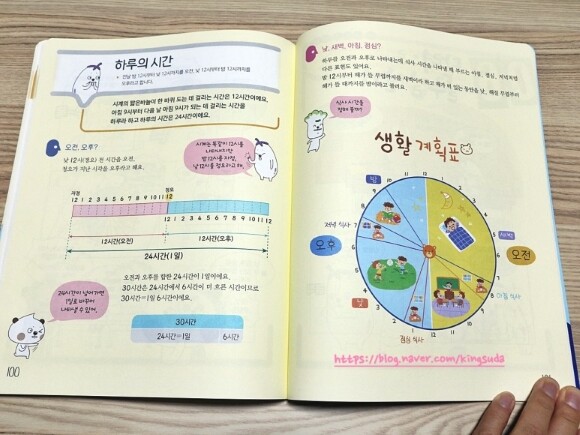 하루의 시간
전날 밤 12시부터 낮 12시까지를 오전, 낮 12시부터 밤 12시까지를
오후라고 합니다.
시계의 짧은바늘이 한 바퀴 도는 데 걸리는 시간은 12시간이에요.
아침 9시부터 다음 날 아침 9시가 되는 데 걸리는 시간을
하루라 하고 하루의 시간은 24시간이에요.
오전, 오후?
낮 12시(정오) 전 시간을 오전,
정오가 지난 시각을 오후라고 해요.
시계는 똑같이 12시를
나타내지만
밤 12시를 자정,
낮 12시를 정오라고 해.
자정 정오
12 1 2 3 4 5 6 7 8 9 10 11 12
12 1 2 3 4 5 6 7 8 9 10 11 12
12시간(오전) 12시간(오후)
24시간(1일)
오전과 오후를 합한 24시간이 1일이에요.
30시간은 24시간에서 6시간이 더 흐른 시간이므로
30시간=1일 6시간이에요.
24시간이 넘어가면
1일로 바꾸어
나타낼 수 있어.
30시간
24시간=1일 6시간
100
낮, 새벽, 아침, 점심?
하루를 오전과 오후로 나타내는데 식사 시간을 나타낼 때 부르는 아침, 점심, 저녁처럼
다른 표현도 있어요.
밤 12시부터 해가 뜰 무렵까지를 새벽이라 하고 해가 떠 있는 동안을 낮, 해질 무렵부터
해가 뜰 때까지를 밤이라고 불러요.
식사 시간을
정해 볼까?
생활 계획표
밤
새벽
저녁 식사
오후
오전
아침 식사
낮
점심 식사
https://blog.naver.com/kingsuda